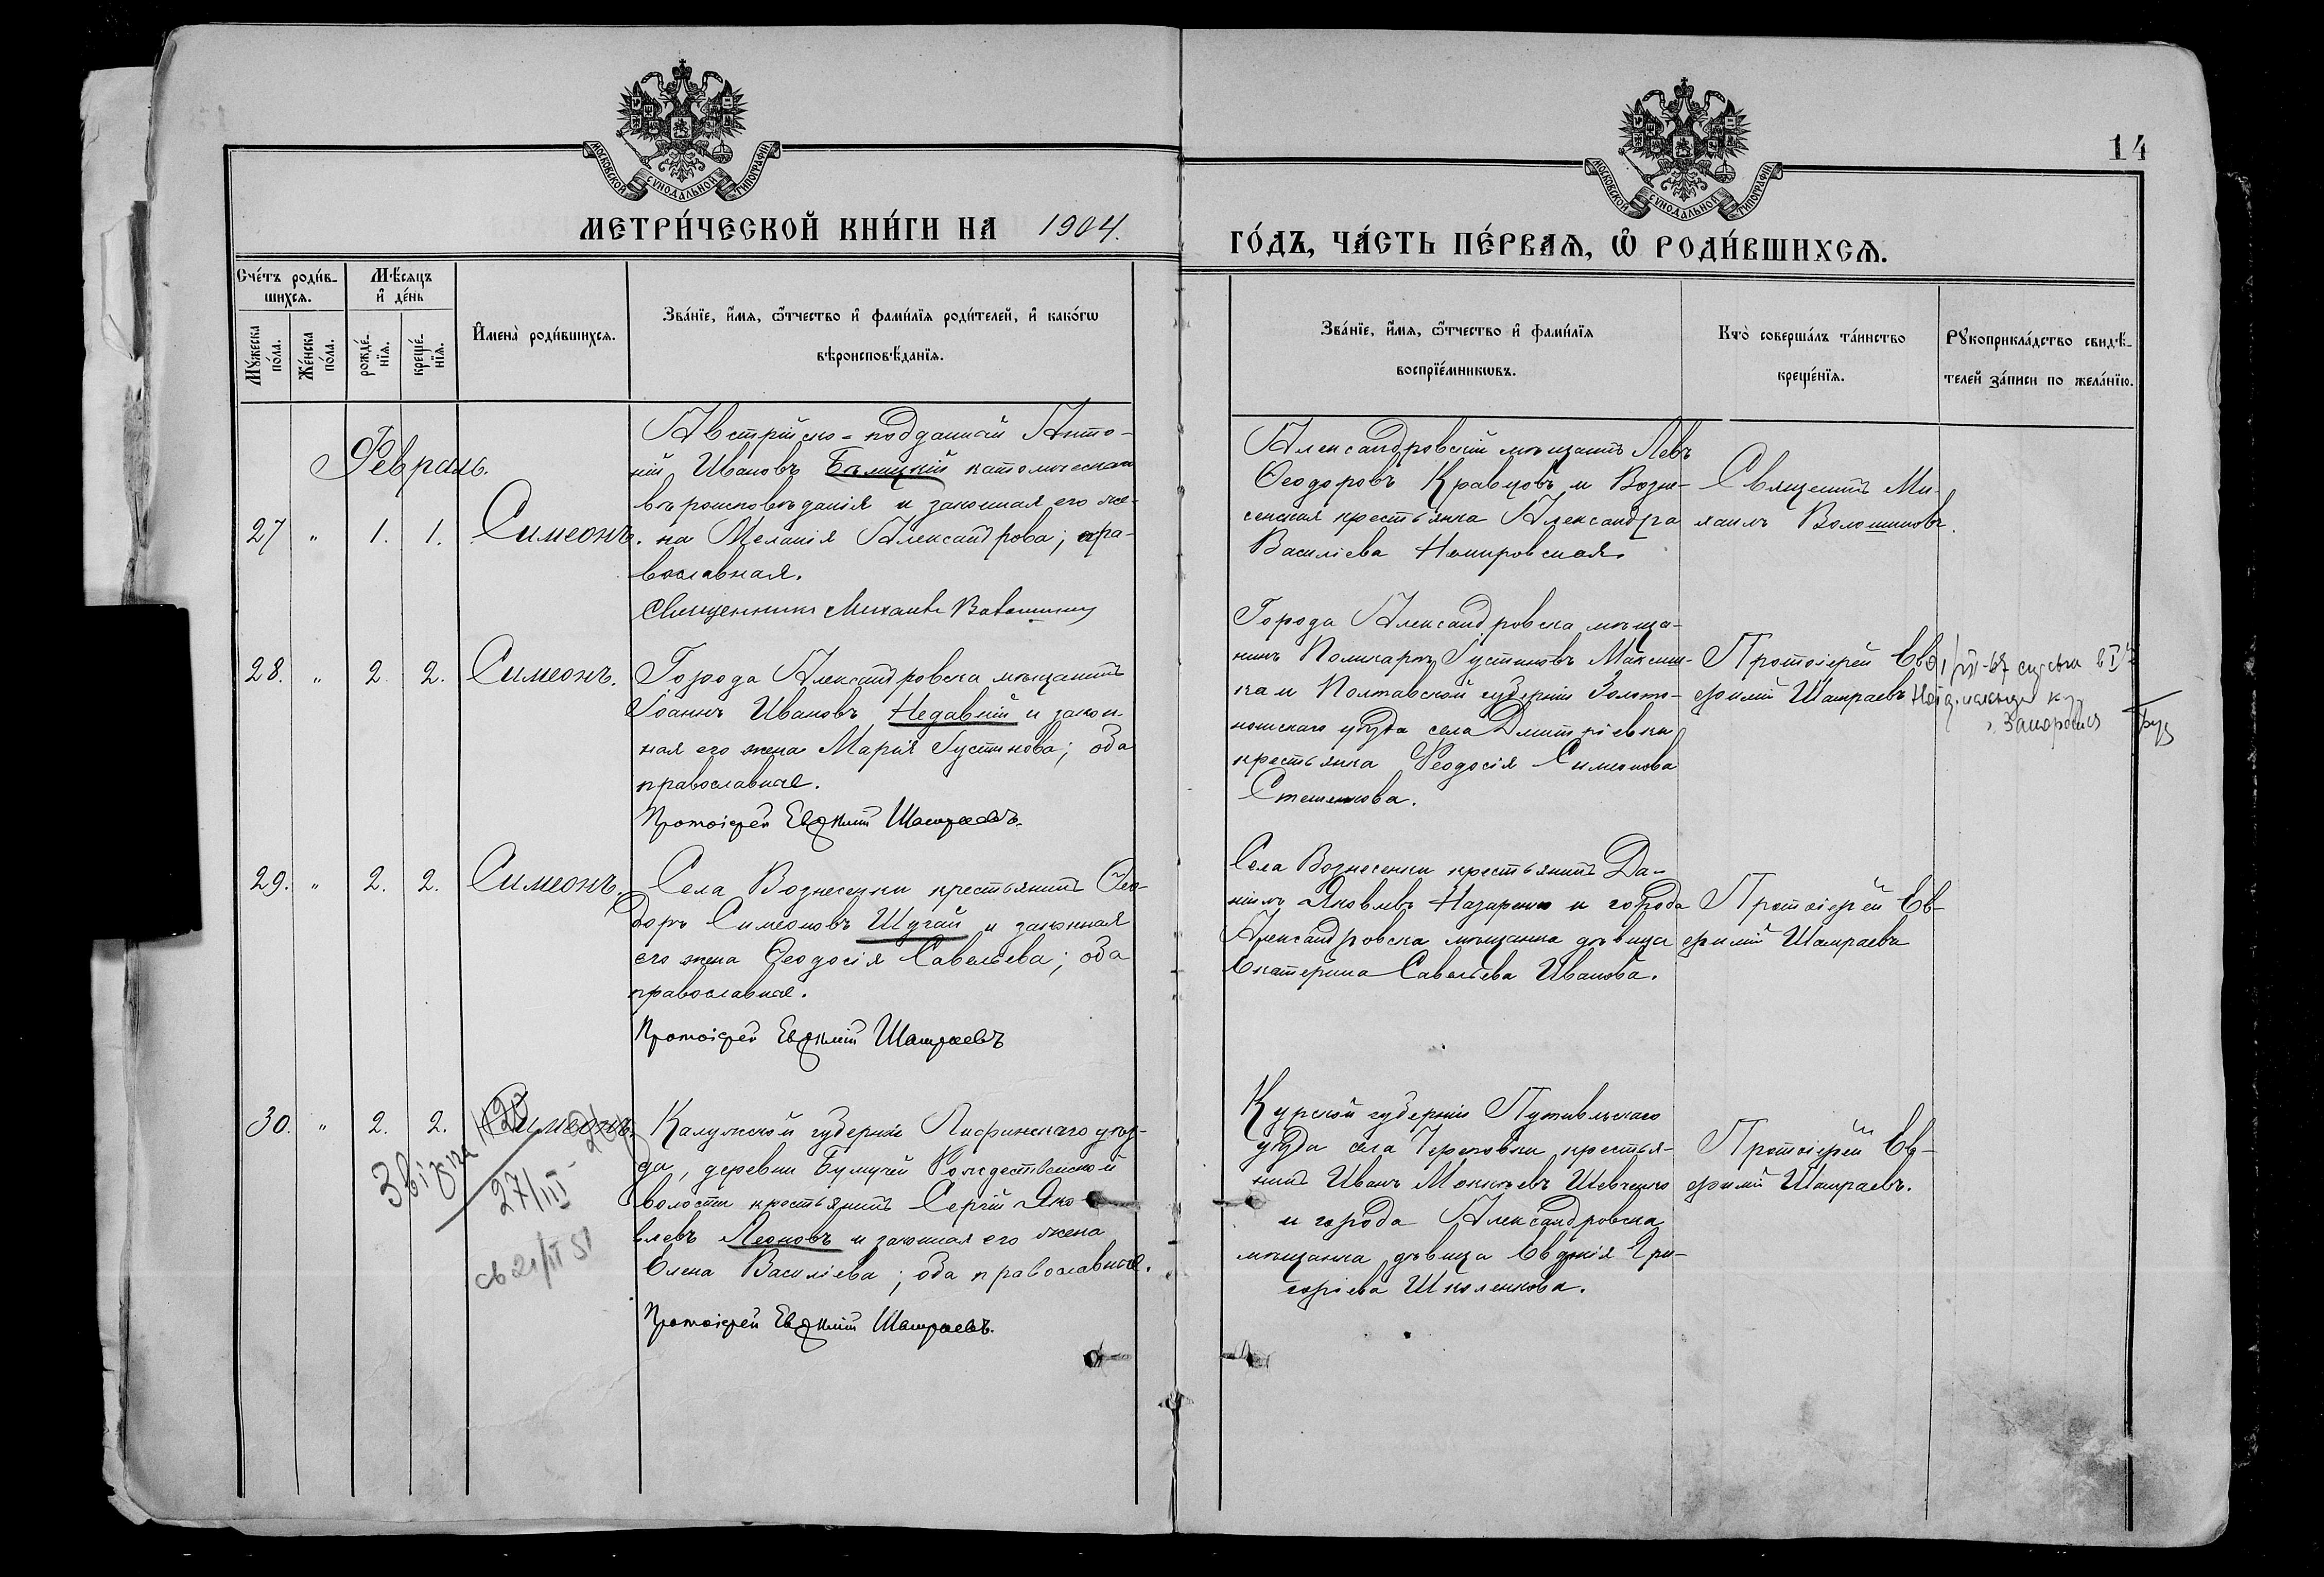 14
МОСКОВСКОЙ СУНОДАЛЬНОЙ ТИПОГРАФІИ
МОСКОВСКОЙ СУНОДАЛЬНОЙ ТИПОГРАФІИ
МЕТРИ́ЧЕСКОЙ КНИ́ГИ НА 1904.
ГО́ДЪ, ЧА́СТЬ ПЕ́РВАѦ, Ѡ РОДИ́ВШИХСѦ.
Сче́тъ роди́в-
шихсѧ.
Мꙋжеска
по́ла.
Же́нска
по́ла.
Мѣ́сѧцъ
и҆ де́нь
рожде́-
нїѧ.
креще́-
нїѧ.
И҆мена̀ роди́вшихсѧ.
Зва́нїе, и҆́мѧ, ѻ҆́тчество и҆ фами́лїѧ роди́телей, и҆ како́гѡ
вѣроисповѣ́данїѧ.
Зва́нїе, и҆́мѧ, ѻ҆́тчество и҆ фами́лїѧ
воспрїе́мникѡвъ.
Кто̀ соверша́лъ та́инство
креще́нїѧ.
Рꙋкоприкла́дство свидѣ́-
телей за́писи по жела́нїю.
Февраль.
27 " 1. 1. Симеонъ.
Австрійско-подданный Анто-
ній Ивановъ католическаго
вѣроисповѣданія и законная его же-
на Меланія Александрова; пра-
вославная.
Священникъ Михаилъ Волошиновъ
Александровскій мѣщанинъ Левъ
Ѳеодоровъ Кравцовъ и Возне-
сенская крестьянка Александра
Василіева Немировская.
Священникъ Ми-
хаилъ Волошиновъ.
28. " 2. 2. Симеонъ.
Города Александровска мѣщанинъ
Іоаннъ Ивановъ Недавній и закон-
ная его жена Марія Густинова; оба
православные.
Протоіерей Евѳимій Шамраевъ.
Города Александровска мѣща-
нинъ Поликарпъ Густиновъ Максим-
ка и Полтавской губерніи Золото-
ношскаго уѣзда села Дмитріевки
крестьянка Ѳеодосія Симеонова
Стешенкова.
Протоіерей Ев-
ѳимій Шамраевъ
29. " 2. 2. Симеонъ.
Села Вознесенки крестьянинъ Ѳео-
доръ Симеоновъ Шугай и законная
его жена Ѳеодосія Савельева; оба
православные.
Протоіерей Евѳимій Шамраевъ
Села Вознесенки крестьянинъ Да-
ніилъ Яковлевъ Назаренко и города
Александровска мѣщанка дѣвица
Екатерина Савельева Иванова.
Протоіерей Ев-
ѳимій Шамраевъ
30. " 2. 2. Симеонъ.
27/III
св 21/II 51
Калужской губерніи уѣз-
да, деревни Рождественской
волости крестьянинъ Сергій Яко-
влевъ Леоновъ и законная его жена
Елена Василіева; оба православные.
Протоіерей Евѳимій Шамраевъ.
Курской губерніи Путивльскаго
уѣзда села крестья-
нинъ Иванъ Шевченко
и города Александровска
мѣщанка дѣвица Гри-
горіева Школенкова.
Протоіерей Ев-
ѳимій Шамраевъ.